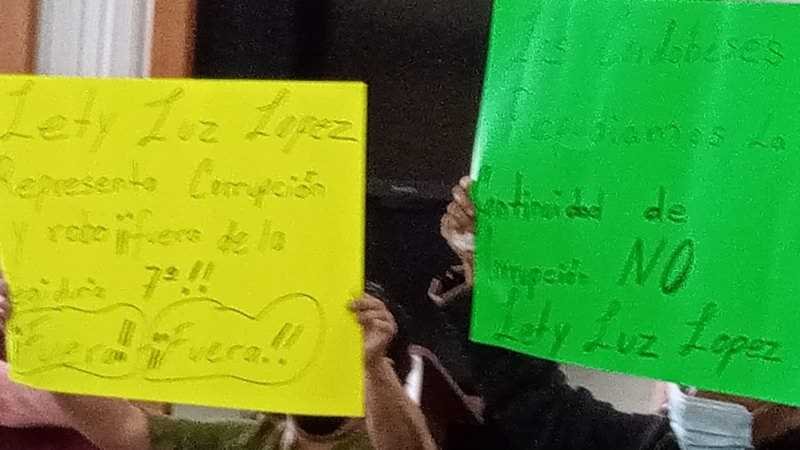 Lety Luz Lopez
Representa Corrupción
y robo ¡¡fuera de la
7ª!!
¡Fuera!! ¡¡Fuera.!!
Los Cordobeses
Repudiamos La
Continuidad de
Corrupción NO
Lety Luz Lopez